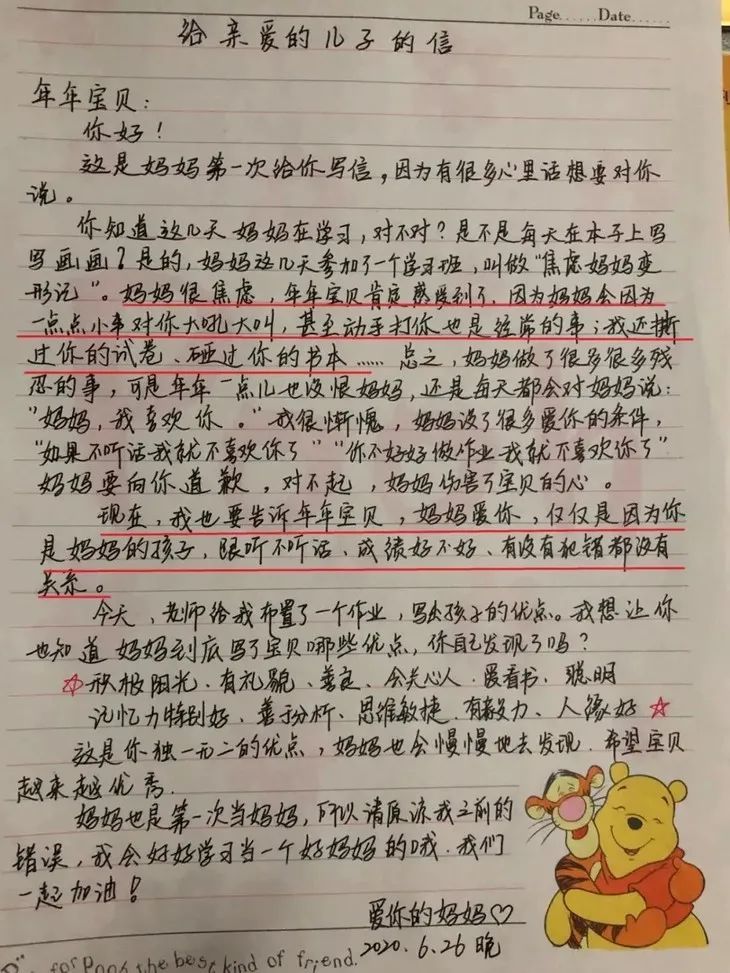 Page......Date......
给亲爱的儿子的信
年年宝贝：
你好！
这是妈妈第一次给你写信，因为有很多心里话想要对你
说。
你知道这几天妈妈在学习，对不对？是不是每天在本子上写
写画画？是的，妈妈这几天参加了一个学习班，叫做“焦虑妈妈变
形记”。妈妈很焦虑，年年宝贝肯定感受到了，因为妈妈会因为
一点点小事对你大吼大叫，甚至动手打你也是经常的事；我还撕
过你的试卷、砸过你的书本……总之，妈妈做了很多很多残
忍的事，可是年年一点儿也没恨妈妈，还是每天都会对妈妈说：
“妈妈，我喜欢你。”我很惭愧，妈妈设了很多爱你的条件，
“如果不听话我就不喜欢你了”“你不好好做作业我就不喜欢你了”
妈妈要向你道歉，对不起，妈妈伤害了宝贝的心。
现在，我也要告诉年年宝贝，妈妈爱你，仅仅是因为你
是妈妈的孩子，跟听不听话、成绩好不好、有没有犯错都没有
关系。
今天，老师给我布置了一个作业，写出孩子的优点。我想让你
也知道妈妈到底写了宝贝哪些优点，你自己发现了吗？
☆积极阳光、有礼貌、善良、会关心人、爱看书、聪明
记忆力特别好、善于分析、思维敏捷、有毅力、人缘好☆
这是你独一无二的优点，妈妈也会慢慢地去发现.希望宝贝
越来越优秀.
妈妈也是第一次当妈妈，所以请原谅我之前的
错误，我会好好学习当一个好妈妈的哦.我们
一起加油！
爱你的妈妈♡
2020.6.26晚
for Pooh the best kind of friend.